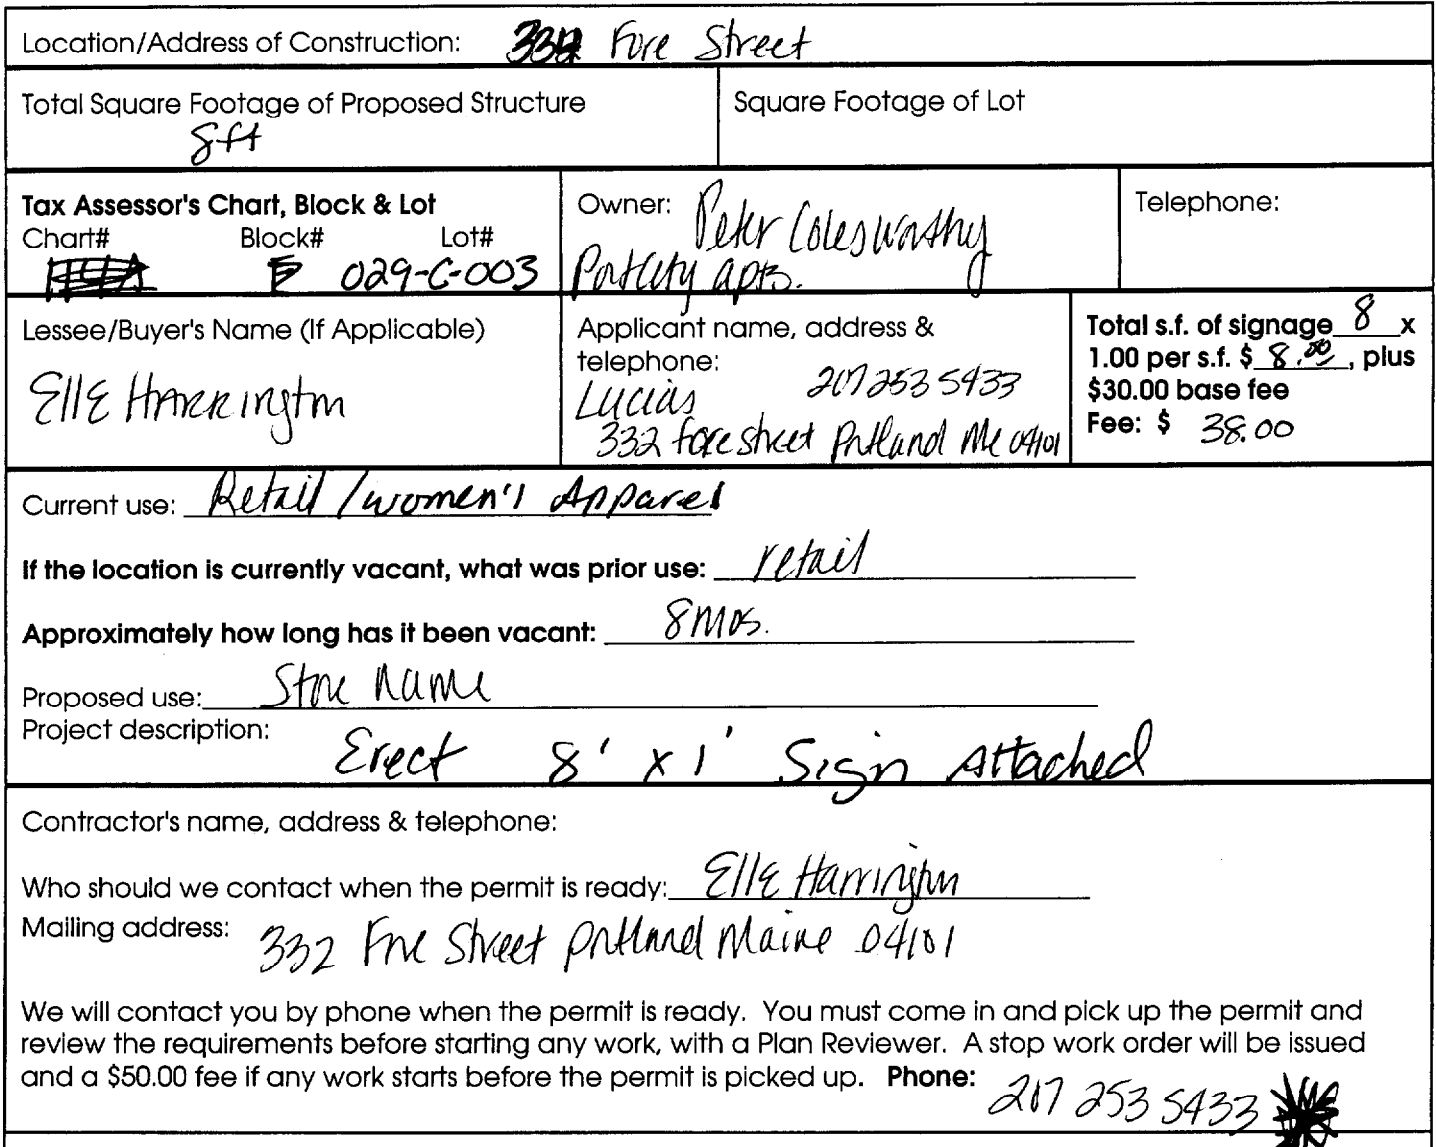 Location/Address of Construction: 332 Fore Street
Total Square Footage of Proposed Structure
8ft
Square Footage of Lot
Tax Assessor's Chart, Block & Lot
Chart# Block# Lot#
029-C-003
Owner: Peter Colesworthy
Portcity apts.
Telephone:
Lessee/Buyer's Name (If Applicable)
EllE HARRington
Applicant name, address &
telephone:
Lucias 207 253 5433
332 fore street Portland Me 04101
Total s.f. of signage 8 x
1.00 per s.f. $ 8.00, plus
$30.00 base fee
Fee: $ 38.00
Current use: Retail / women's Apparel
If the location is currently vacant, what was prior use: retail
Approximately how long has it been vacant: 8 mos.
Proposed use: Store Name
Project description:
Erect 8' x 1' Sign Attached
Contractor's name, address & telephone:
Who should we contact when the permit is ready: EllE Harrington
Mailing address: 332 Fore Street Portland Maine 04101
We will contact you by phone when the permit is ready. You must come in and pick up the permit and
review the requirements before starting any work, with a Plan Reviewer. A stop work order will be issued
and a $50.00 fee if any work starts before the permit is picked up. Phone:
207 253 5433